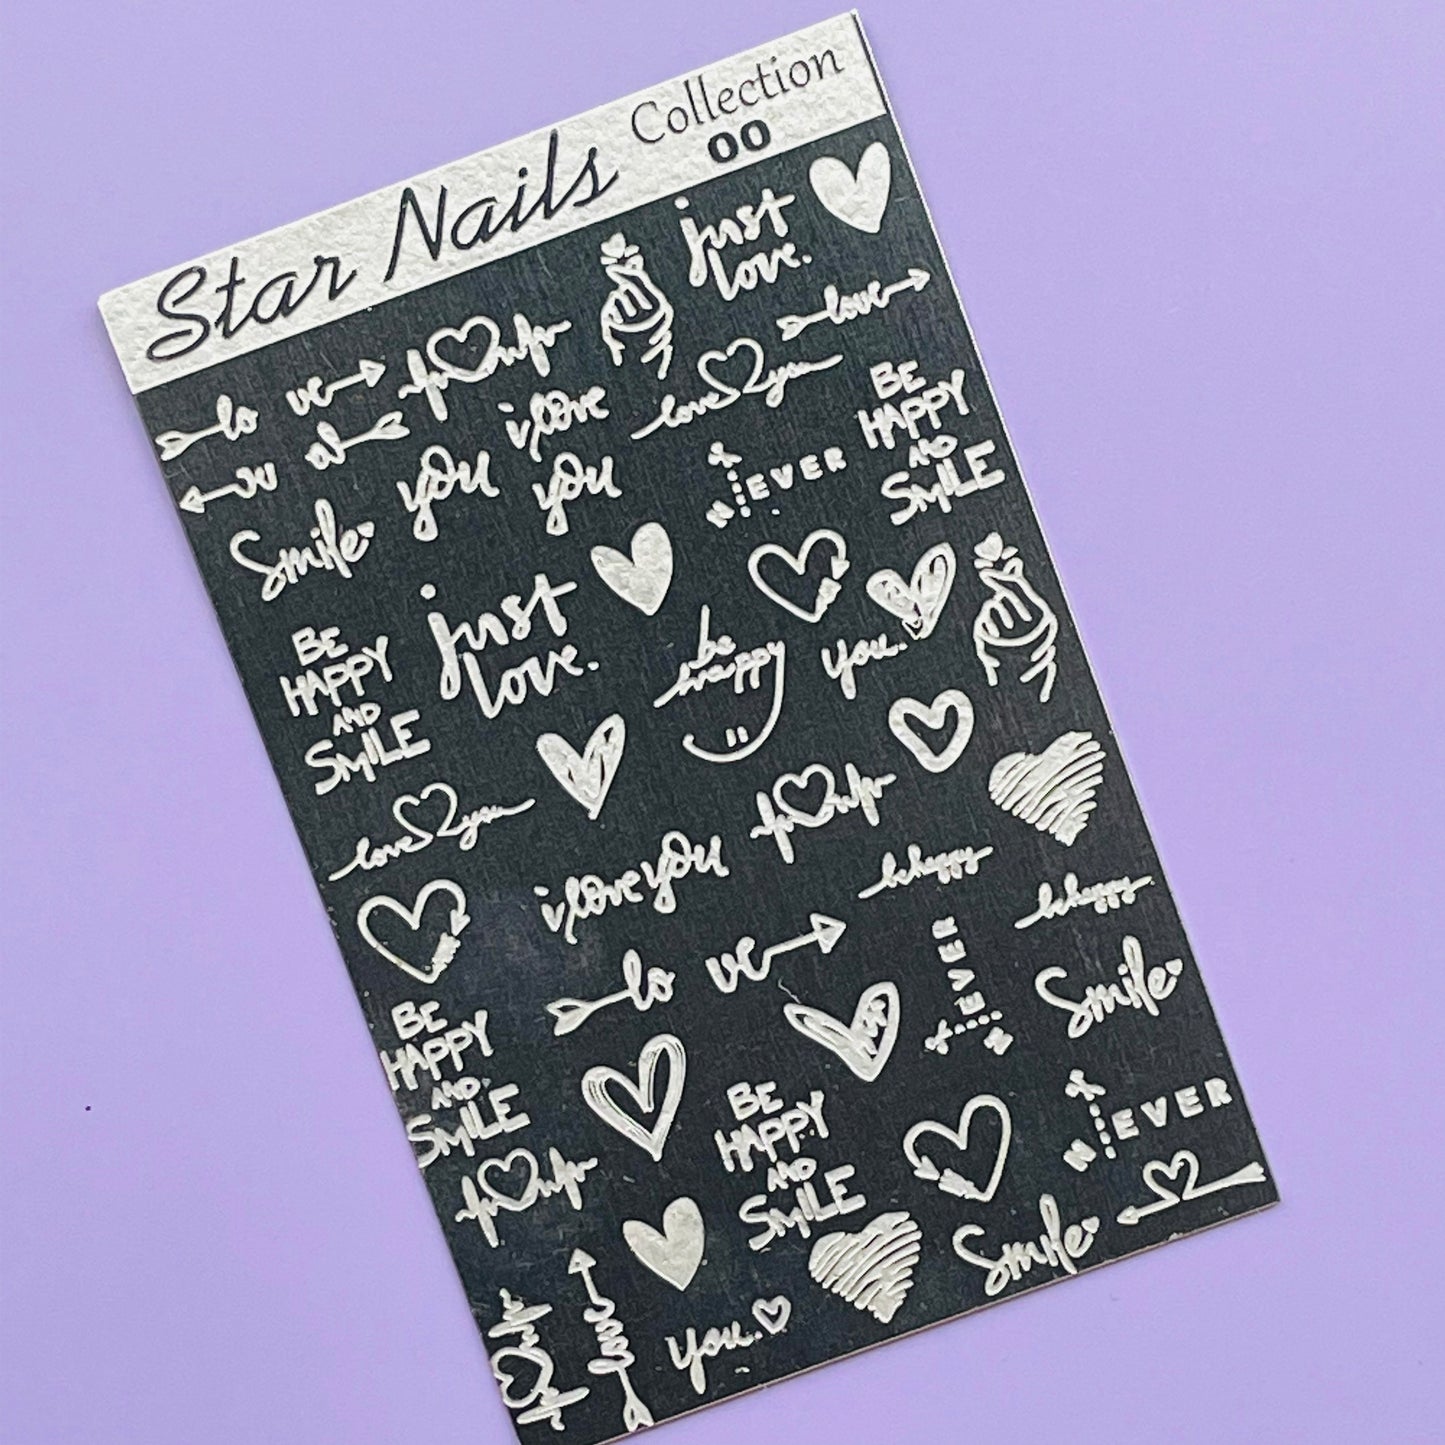 Star Nails
Collection
00
just
love.
love
lo ve
love you
i love
you
you
BE
HAPPY
AND
SMILE
NEVER
Smile
just
love.
be
happy
you.
BE
HAPPY
AND
SMILE
love you
i love you
be happy
be happy
lo ve
EVER
Smile
BE
HAPPY
AND
SMILE
BE
HAPPY
AND
SMILE
NEVER
Smile
love
you.